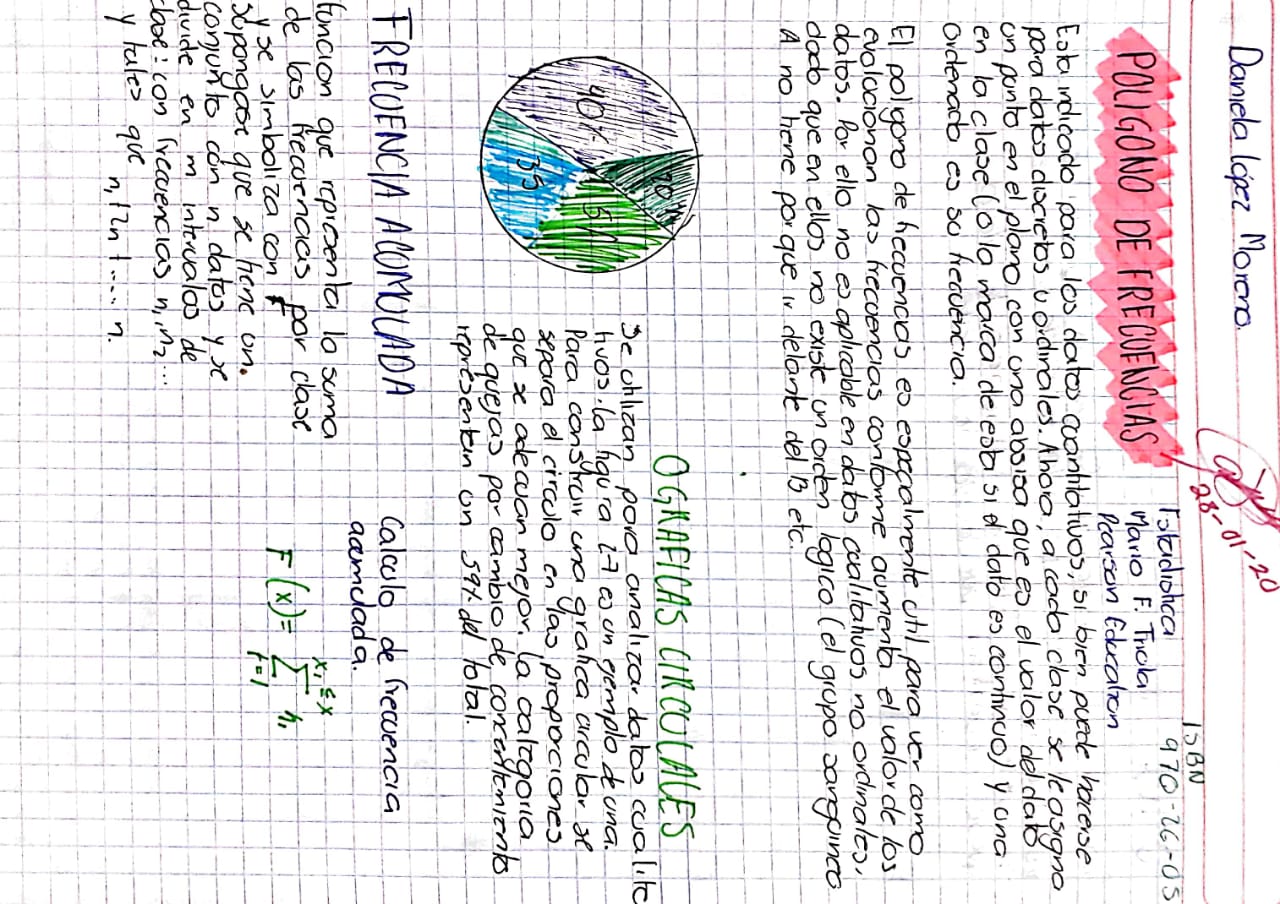 Daniela López Moreno.
28-01-20
ISBN
970-26-05
POLIGONO DE FRECUENCIAS
Estadistica
Mario F. Triola
Pearson Education
Esta indicado para los datos cuantitativos, si bien puede hacerse
para datos discretos u ordinales. Ahora, a cada clase se le asigna
un punto en el plano con una absisa que es el valor del dato
en la clase (o la marca de esta si el dato es continuo) y una
ordenado es su frecuencia.
El poligono de frecuencias es especialmente util para ver como
evolucionan las frecuencias conforme aumenta el valor de los
datos. Por ello no es aplicable en datos cualitativos no ordinales,
dado que en ellos no existe un orden logico (el grupo sanguineo
A no tiene porque ir delante del B etc.
GRAFICAS CIRCULARES
40%
20%
35
5%
Se utilizan para analizar datos cualita
tivos. la figura 2-7 es un ejemplo de una.
Para construir una grafica circular se
separa el circulo en las proporciones
que se adecuan mejor. la categoria
de quejas por cambio de
representan un 59% del total.
FRECUENCIA ACUMULADA
funcion que reprenta la suma
de las frecuencias por clase
y se simboliza con F
supongase que se tiene un.
conjunto con n datos y se
divide en m intervalos de
clase: con frecuencias n, n2 ...
y tales que n,
Calculo de frecuencia
acumulada.
F (x) = ∑ n,
xi ≤ x
i=1